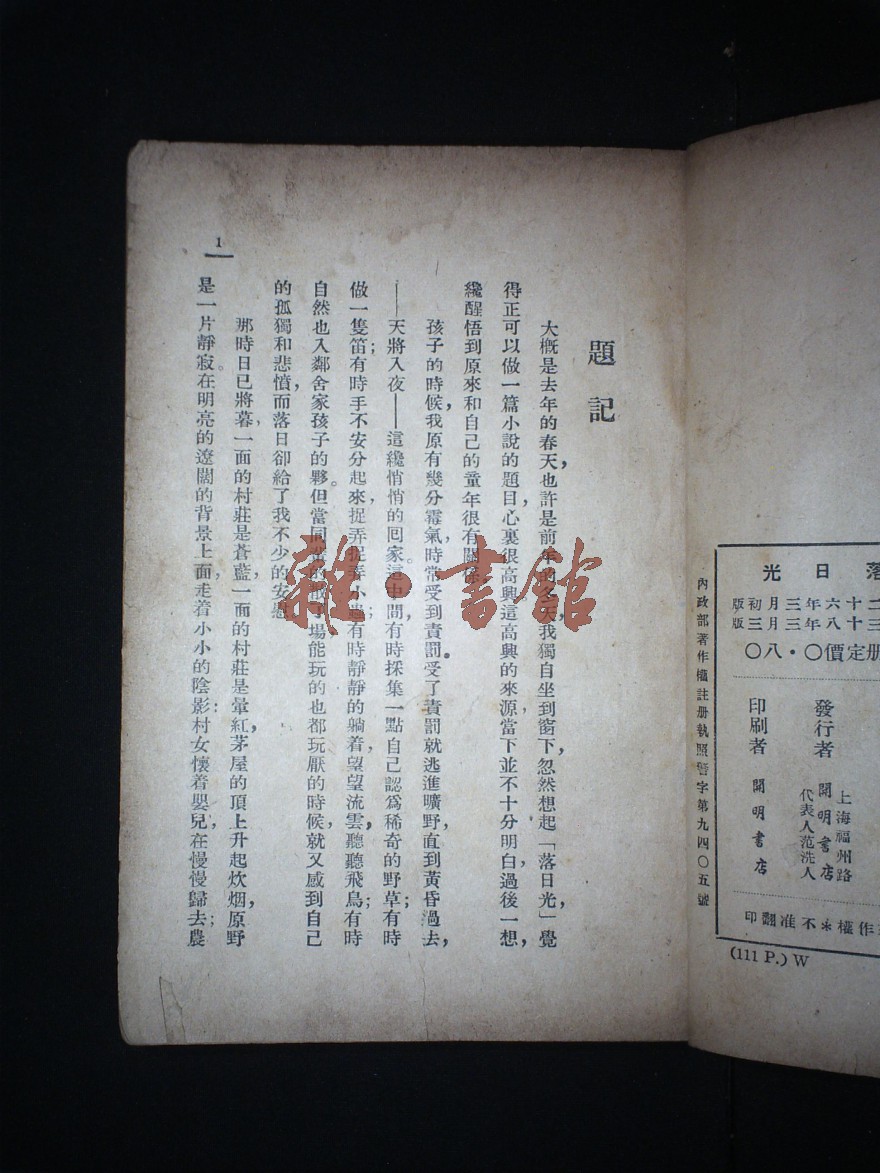 落日光
二十六年三月初版
三十八年三月三版
册定價〇・八〇
上海福州路
發行者 開明書店
代表人范洗人
印刷者 開明書店
作權＊不准翻印
內政部著作權註册執照警字第九四〇五號
(111 P.) W
題記
大概是去年的春天，也許是前年的冬天，我獨自坐到窗下，忽然想起「落日光」，覺
得正可以做一篇小說的題目，心裏很高興。這高興的來源，當下並不十分明白，過後一想，
纔醒悟到原來和自己的童年很有關係。
孩子的時候，我原有幾分霉氣，時常受到責罰。受了責罰就逃進曠野，直到黃昏過去，
——天將入夜——這纔悄悄的回家。這中間有時採集一點自己認爲稀奇的野草；有時
做一隻笛；有時手不安分起來，捉弄捉弄小蟲；有時靜靜的躺着，望望流雲，聽聽飛鳥；有時
自然也入鄰舍家孩子的夥。但當同黨的散了場，能玩的也都玩厭的時候，就又感到自己
的孤獨和悲憤，而落日卻給了我不少的安慰。
那時日已將暮，一面的村莊是蒼藍，一面的村莊是暈紅，茅屋的頂上升起炊烟，原野
是一片靜寂。在明亮的遼闊的背景上面，走着小小的陰影：村女懷着嬰兒，在慢慢歸去；農
1
雜·書館